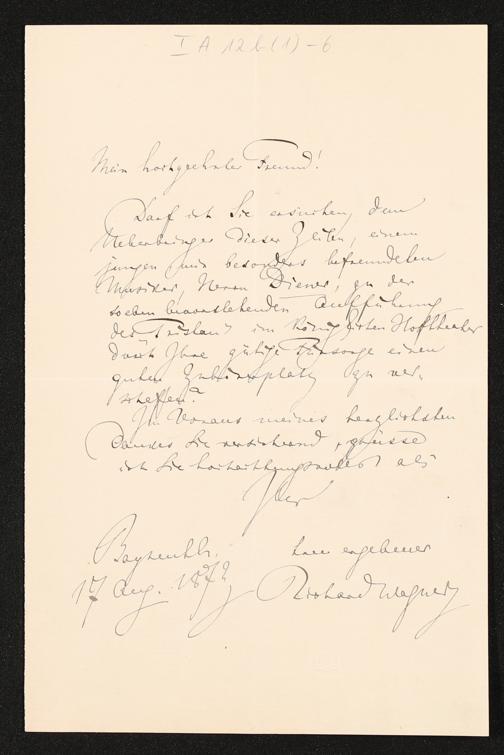 I A 12 b (1) - 6
Mein hochgeehrter Freund!
Darf ich Sie ersuchen, dem
Ueberbringer dieser Zeilen, einem
jungen mir besonders befreundeten
Musiker, Herrn Diener, zu der
soeben bevorstehenden Aufführung
des "Tristan" im Königlichen Hoftheater
durch Ihre gütige Fürsorge einen
guten platz zu ver-
schaffen?
Im Voraus meines herzlichsten
Dankes Sie versichernd, grüsse
ich Sie hochachtungsvollst als
Ihr
Bayreuth. treu ergebener
17 Aug. 1872 Richard Wagner